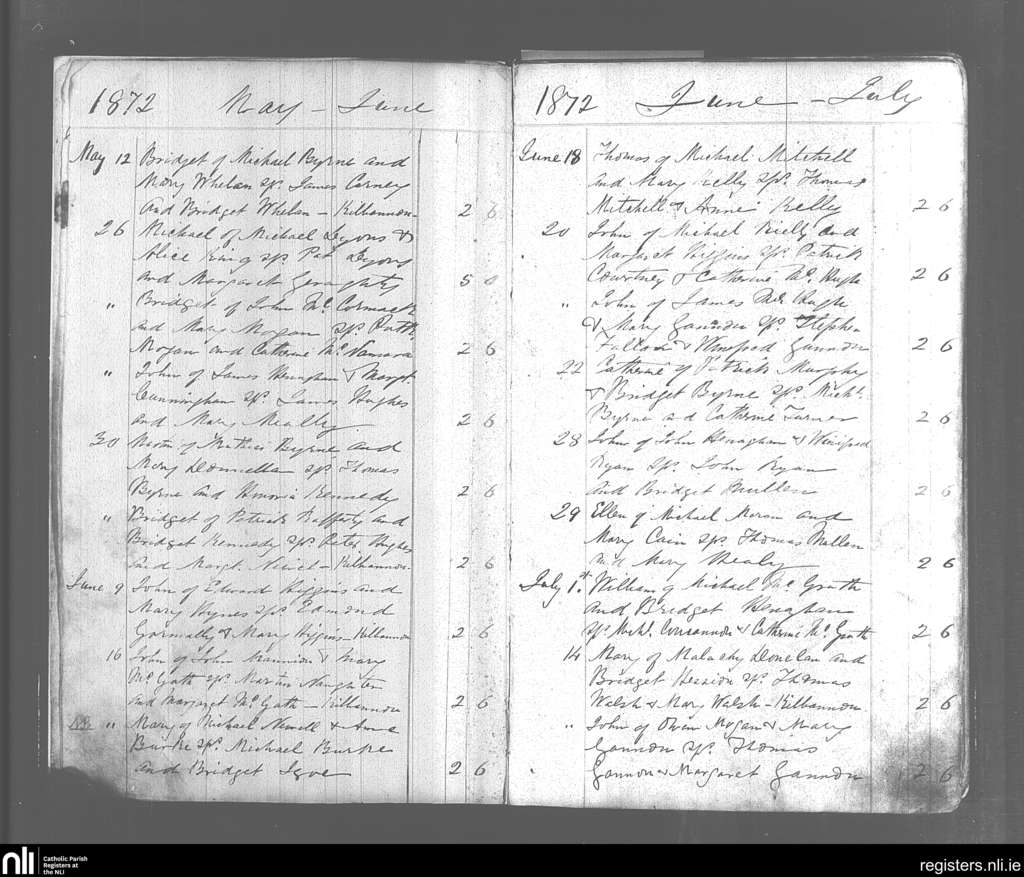 1872 May - June
May 12 Bridget of Michael Byrne and
Mary Whelan Sps. James Carney
And Bridget Whelan - Kilbannon - 2 6
26 Michael of Michael Lyons &
Alice King Sps Pat Lyons
and Margaret Geraghty 5 0
" Bridget of John Mc. Cormack
and Mary Mogan Sps. Patk.
Mogan and Catherine Mc. Namara 2 6
" John of James Henaghan & Margt.
Cunningham Sps. James Hughes
and Mary Meally 2 6
30 of Mathias Byrne and
Mary Donnellan Sps Thomas
Byrne and Honoria Kennedy 2 6
" Bridget of Patrick Rafferty and
Bridget Kennedy Sps. Peter Hughes
and Margt. - Kilbannon - 2 6
June 9 John of Edward Higgins and
Mary Hynes Sps. Edmond
Gormally & Mary Higgins - Kilbannon 2 6
16 John of John Mannion & Mary
Mc Gath Sps. Martin Naughten
and Margaret Mc Gath - Kilbannon 2 6
" Mary of Michael Newell & Anne
Burke Sps. Michael Burke
and Bridget Igoe 2 6
1872 June - July
June 18 Thomas of Michael Mitchell
and Mary Kelly Sps. Thomas
Mitchell & Anne Kelly 2 6
20 John of Michael Kielly and
Margaret Higgins Sps. Patrick
Courtney & Catherine Mc. Hugh 2 6
" John of James Mc Hugh
& Mary Gannon Sps. Stephen
Fallon & Winefred Gannon 2 6
22 Catherine of Patrick Murphy
& Bridget Byrne Sps. Michl.
Byrne and Catherine Turner 2 6
28 John of John Henaghan & Winifred
Ryan Sps. John Ryan
and Bridget Mullen 2 6
29 Ellen of Michael Moran and
Mary Cain Sps. Thomas Mullen
and Mary Healy 2 6
July 1st. William of Michael Mc. Grath
and Bridget Henaghan
Sps Michl. Concannon & Catherine Mc. Grath 2 6
14 Mary of Malachy Donelan and
Bridget Hession Sps. Thomas
Walsh & Mary Walsh - Kilbannon 2 6
" John of Owen Mogan & Mary
Gannon Sps. Thomas
Gannon & Margaret Gannon 2 6
nli Catholic Parish
Registers at
the NLI
registers.nli.ie